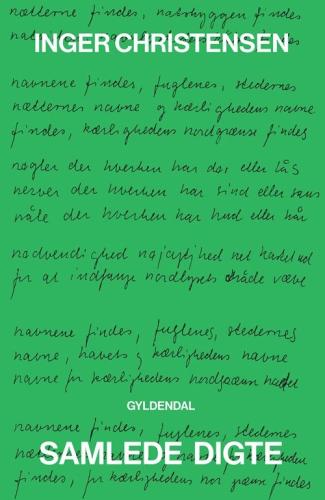 nætterne findes, natskyggen findes
INGER CHRISTENSEN
findes
navnene findes, fuglenes, stedernes
nætternes navne og kærlighedens navne
findes, kærlighedens nordgrænse findes
nøgler der hverken har dør eller lås
nerver der hverken har sind eller sans
nåle der hverken har hud eller hår
nødvendighed nøjagtighed net kastet ud
for at indfange nordlysets tråde væve
navnene findes, fuglenes, stedernes
navne, havets og kærlighedens navne
navne for kærlighedens nordgrænse
GYLDENDAL
navnene findes, fuglenes, stedernes
SAMLEDE DIGTE
findes, for kærlighedens nordgrænse findes